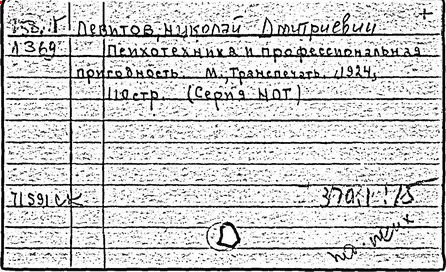 Левитов, Николай Дмитриевич
Л369 Психотехника и профессиональная
пригодность. М., Транспечать, 1924,
110стр. (Серия НОТ)
71591 ск